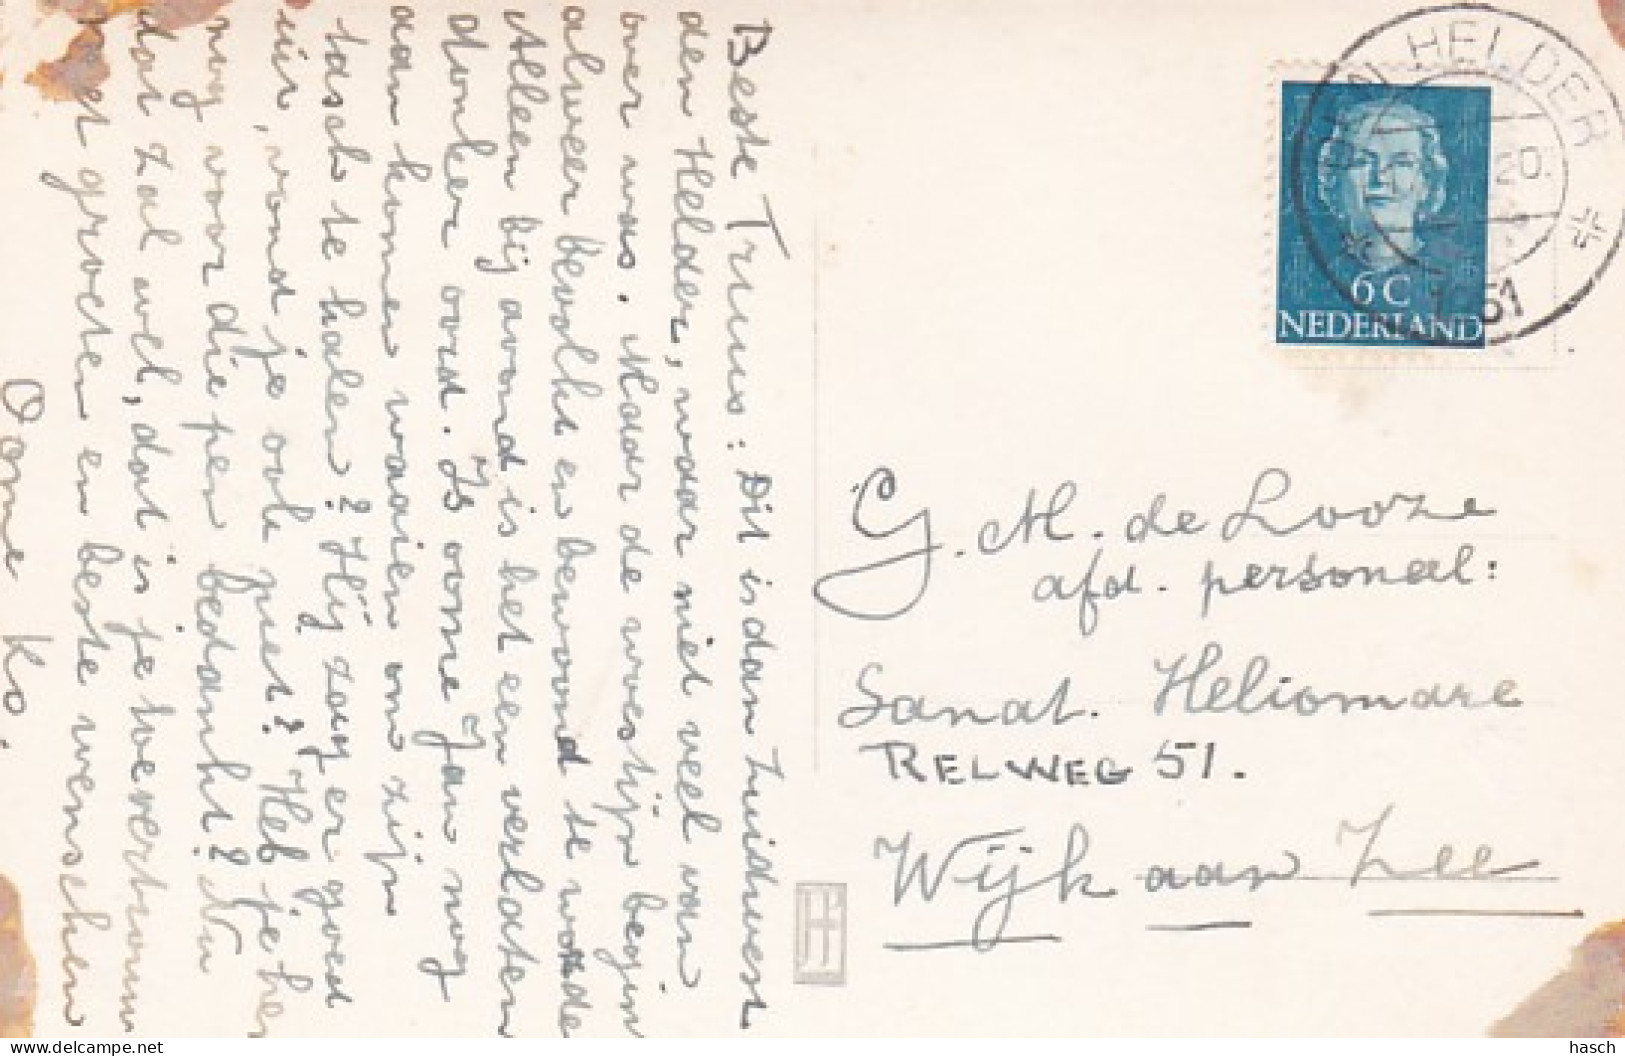 Beste Truus: Dit is dan Zuidwest
den Helder, waar niet veel van
over was. Maar de woestijn begint
alweer bevolkt en bewoond te worden
Alleen bij avond is het een verlaten
donker oord. Is oome Jan nog
aan komen waaien om zijn
tasch te halen? Hij zag er goed
uit, vond je ook niet? Heb je hem
nog voor die pen bedankt? Nu
dat zal wel, dat is je toevertrouwd
met groeten en beste wenschen
Oome Ko.
DEN HELDER
20.
51
6 C
NEDERLAND
G. M. de Looze
afd. personeel:
Sanat. Heliomare
RELWEG 51.
Wijk aan Zee
www.delcampe.net
hasch